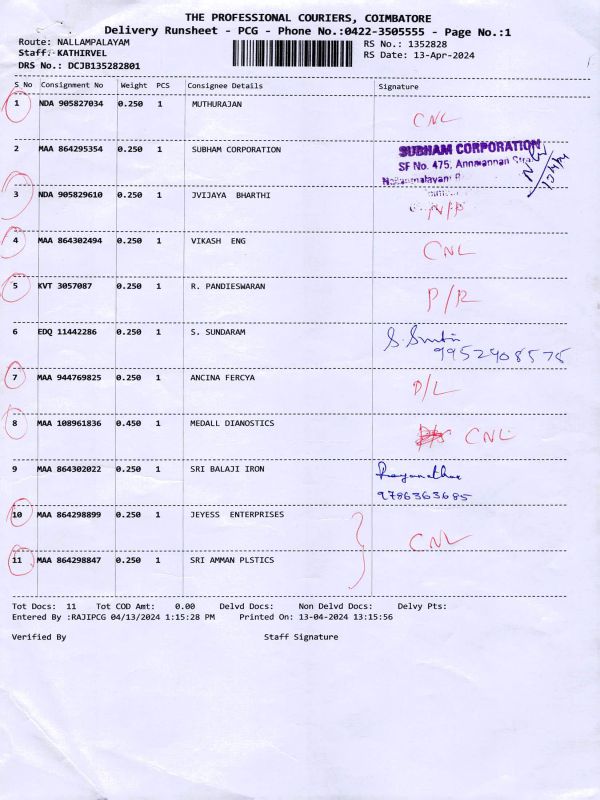 THE PROFESSIONAL COURIERS, COIMBATORE
Delivery Runsheet - PCG - Phone No.:0422-3505555 - Page No.:1
Route: NALLAMPALAYAM RS No.: 1352828
Staff: KATHIRVEL RS Date: 13-Apr-2024
DRS No.: DCJB135282801
S No Consignment No Weight PCS Consignee Details Signature
1 NDA 905827034 0.250 1 MUTHURAJAN CNL
2 MAA 864295354 0.250 1 SUBHAM CORPORATION SUBHAM CORPORATION
SF No. 475, Annmannan
3 NDA 905829610 0.250 1 JVIJAYA BHARTHI
4 MAA 864302494 0.250 1 VIKASH ENG CNL
5 KVT 3057087 0.250 1 R. PANDIESWARAN P/R
6 EDQ 11442286 0.250 1 S. SUNDARAM
9952408578
7 MAA 944769825 0.250 1 ANCINA FERCYA D/L
8 MAA 108961836 0.450 1 MEDALL DIANOSTICS CNL
9 MAA 864302022 0.250 1 SRI BALAJI IRON
9786363685
10 MAA 864298899 0.250 1 JEYESS ENTERPRISES
CNL
11 MAA 864298847 0.250 1 SRI AMMAN PLSTICS
Tot Docs: 11 Tot COD Amt: 0.00 Delvd Docs: Non Delvd Docs: Delvy Pts:
Entered By :RAJIPCG 04/13/2024 1:15:28 PM Printed On: 13-04-2024 13:15:56
Verified By Staff Signature